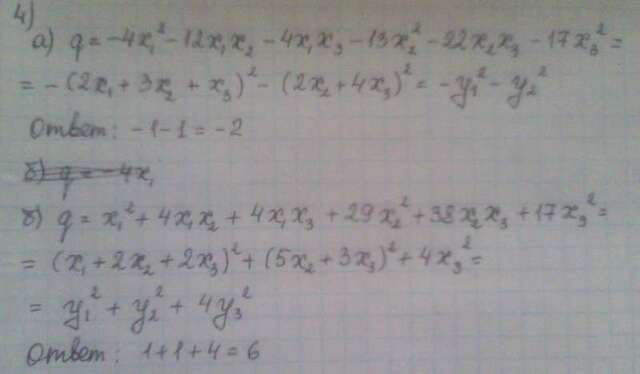 4)
а) q = -4x₁² - 12x₁x₂ - 4x₁x₃ - 13x₂² - 22x₂x₃ - 17x₃² =
= -(2x₁ + 3x₂ + x₃)² - (2x₂ + 4x₃)² = -y₁² - y₂²
Ответ: -1-1 = -2
б) q = -4x₁
б) q = x₁² + 4x₁x₂ + 4x₁x₃ + 29x₂² + 38x₂x₃ + 17x₃² =
= (x₁ + 2x₂ + 2x₃)² + (5x₂ + 3x₃)² + 4x₃² =
= y₁² + y₂² + 4y₃²
Ответ: 1+1+4 = 6